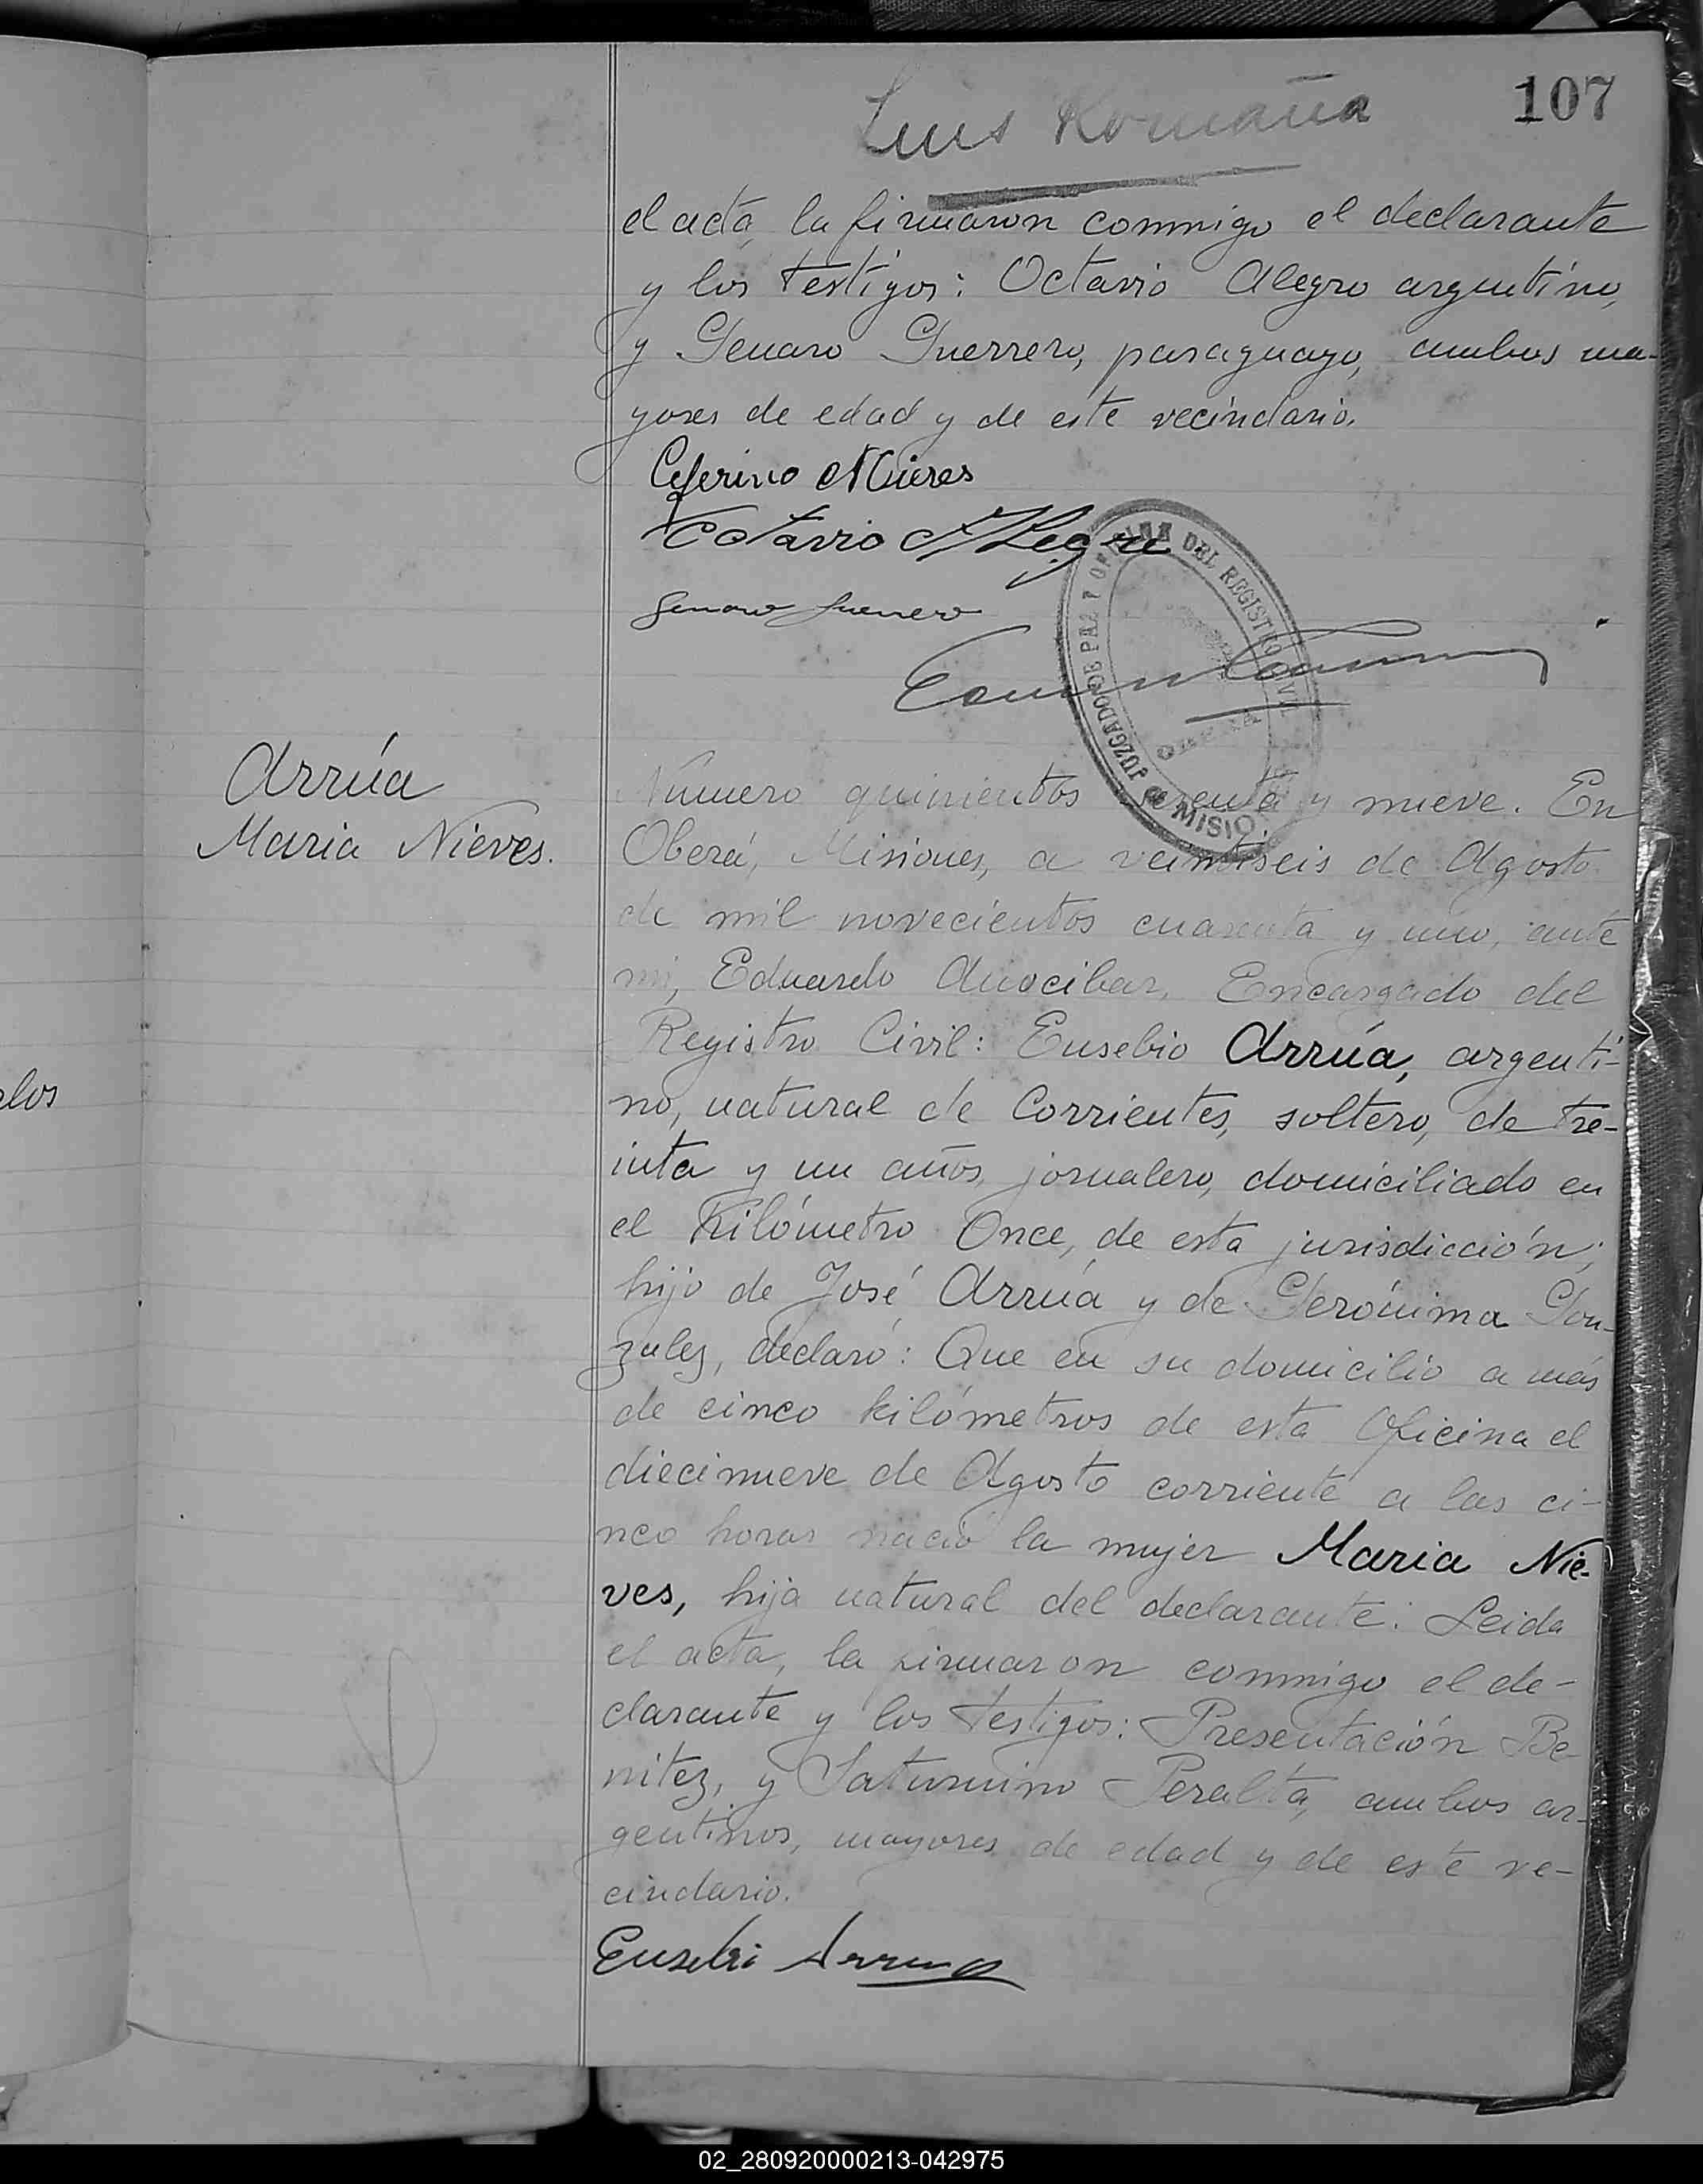 107
Luis Romaña
el acta, la firmaron conmigo el declarante
y los testigos: Octavio Alegro argentino,
y Genaro Guerrero, paraguayo, ambos ma-
yores de edad y de este vecindario.
Ceferino Mieres
Octavio Alegre
Genaro Guerrero
JUZGADO DE PAZ Y OFICINA DEL REGISTRO CIVIL
MISIO
Arrúa
Maria Nieves.
Número quinientos y nueve. En
Oberá, Misiones, a veintiseis de Agosto
de mil novecientos cuarenta y uno, ante
mi, Eduardo Anocibar, Encargado del
Registro Civil: Eusebio Arrúa, argenti-
no, natural de Corrientes, soltero, de tre-
inta y un años, jornalero, domiciliado en
el Kilómetro Once, de esta jurisdicción;
hijo de José Arrúa y de Gerónima Gon-
zalez, declaró: Que en su domicilio a más
de cinco kilómetros de esta Oficina el
diecinueve de Agosto corriente a las ci-
nco horas nació la mujer Maria Nie-
ves, hija natural del declarante. Leida
el acta, la firmaron conmigo el de-
clarante y los testigos: Presentación Be
nitez, y Saturnino Peralta, ambos ar-
gentinos, mayores de edad y de este ve-
cindario.
Eusebi Arrua
los
02_280920000213-042975